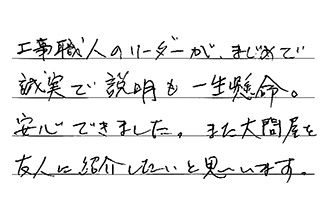 工事職人のリーダーが、まじめで
誠実で説明も一生懸命。
安心できました。また大問屋を
友人に紹介したいと思います。